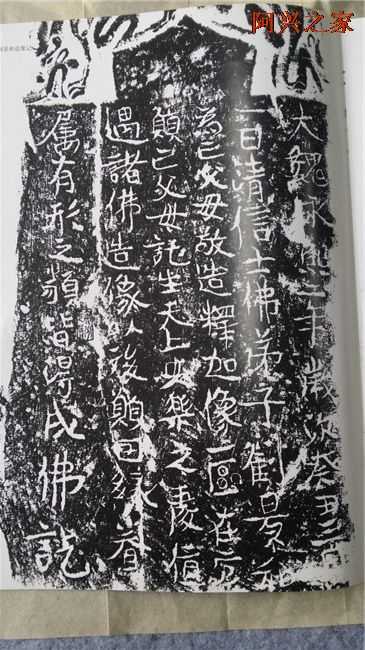 阿兴之家
景和造像記
大魏永熙二年歲次癸丑
一日清信士佛弟子景和
為亡父母敬造釋加像一區在
願亡父母託生天上安樂之處值
遇諸佛造像以後願曰緣眷
属有形之類皆得成佛